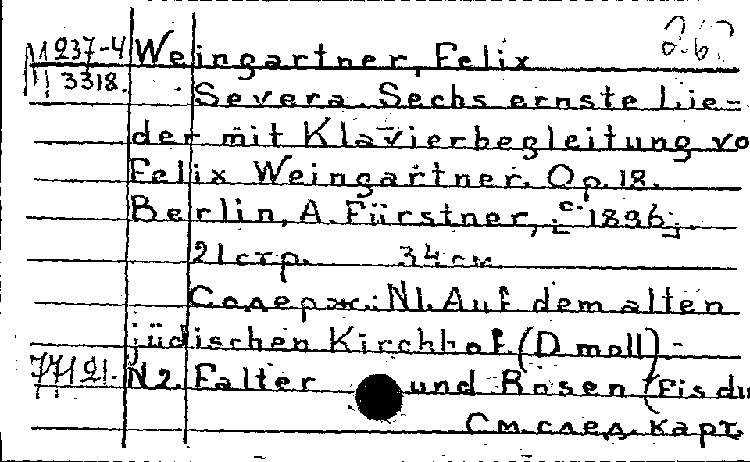 М 237-4 Weingartner, Felix
3318. Severa. Sechs ernste Lie-
der mit Klavierbegleitung vo
Felix Weingartner. Op. 18.
Berlin, A. Fürstner, [c. 1896].
21 стр. 34 см.
Содерж.: N1. Auf dem alten
jüdischen Kirchhof. (D moll) -
77121. N2. Falter und Rosen (Fis du
См. след. карт.